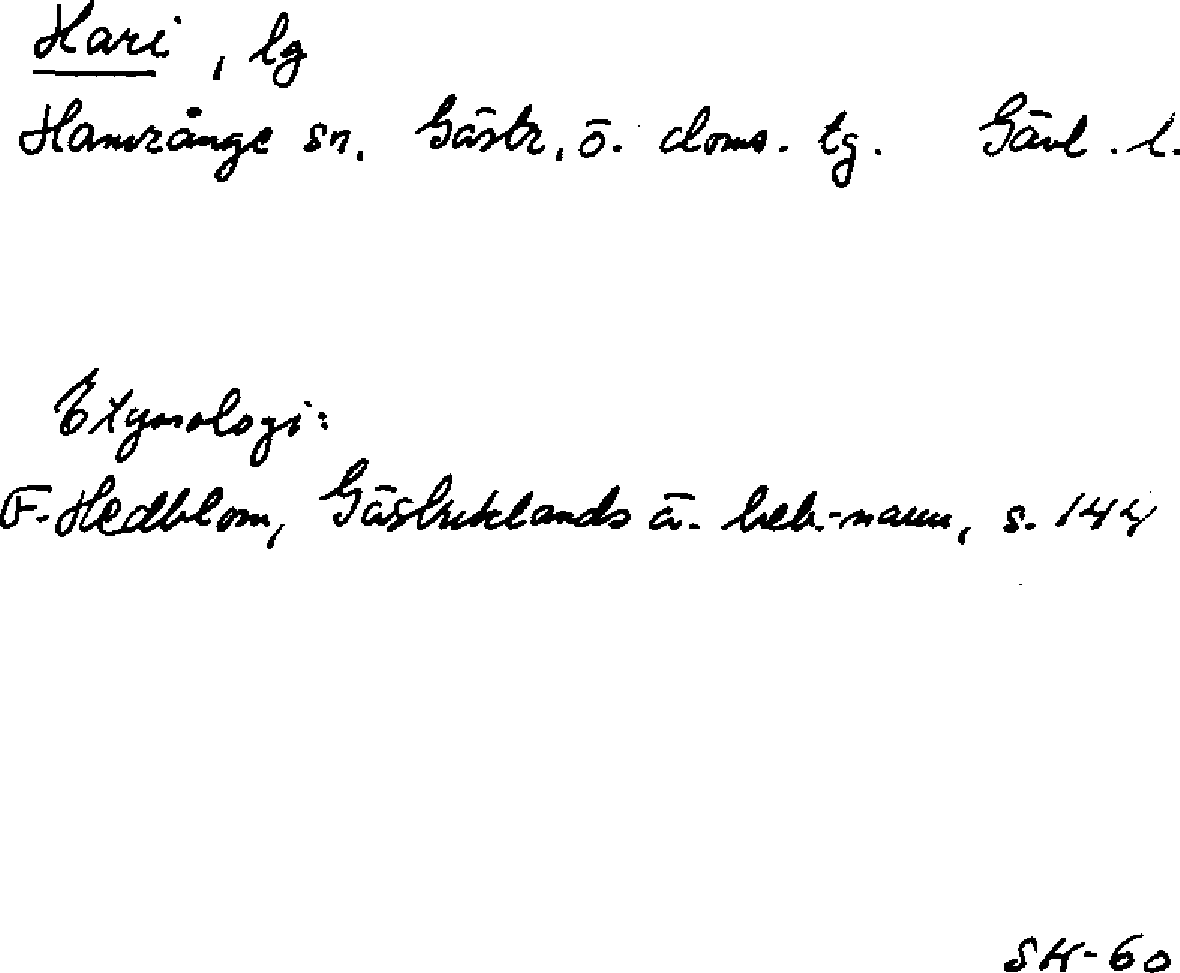 Hari, lg
Hamrånge sn. Gästr. ö. doms. tg. Gävl. l.
Etymologi:
F. Hedblom, Gästriklands ä. beb.-namn, s. 144
SH-60